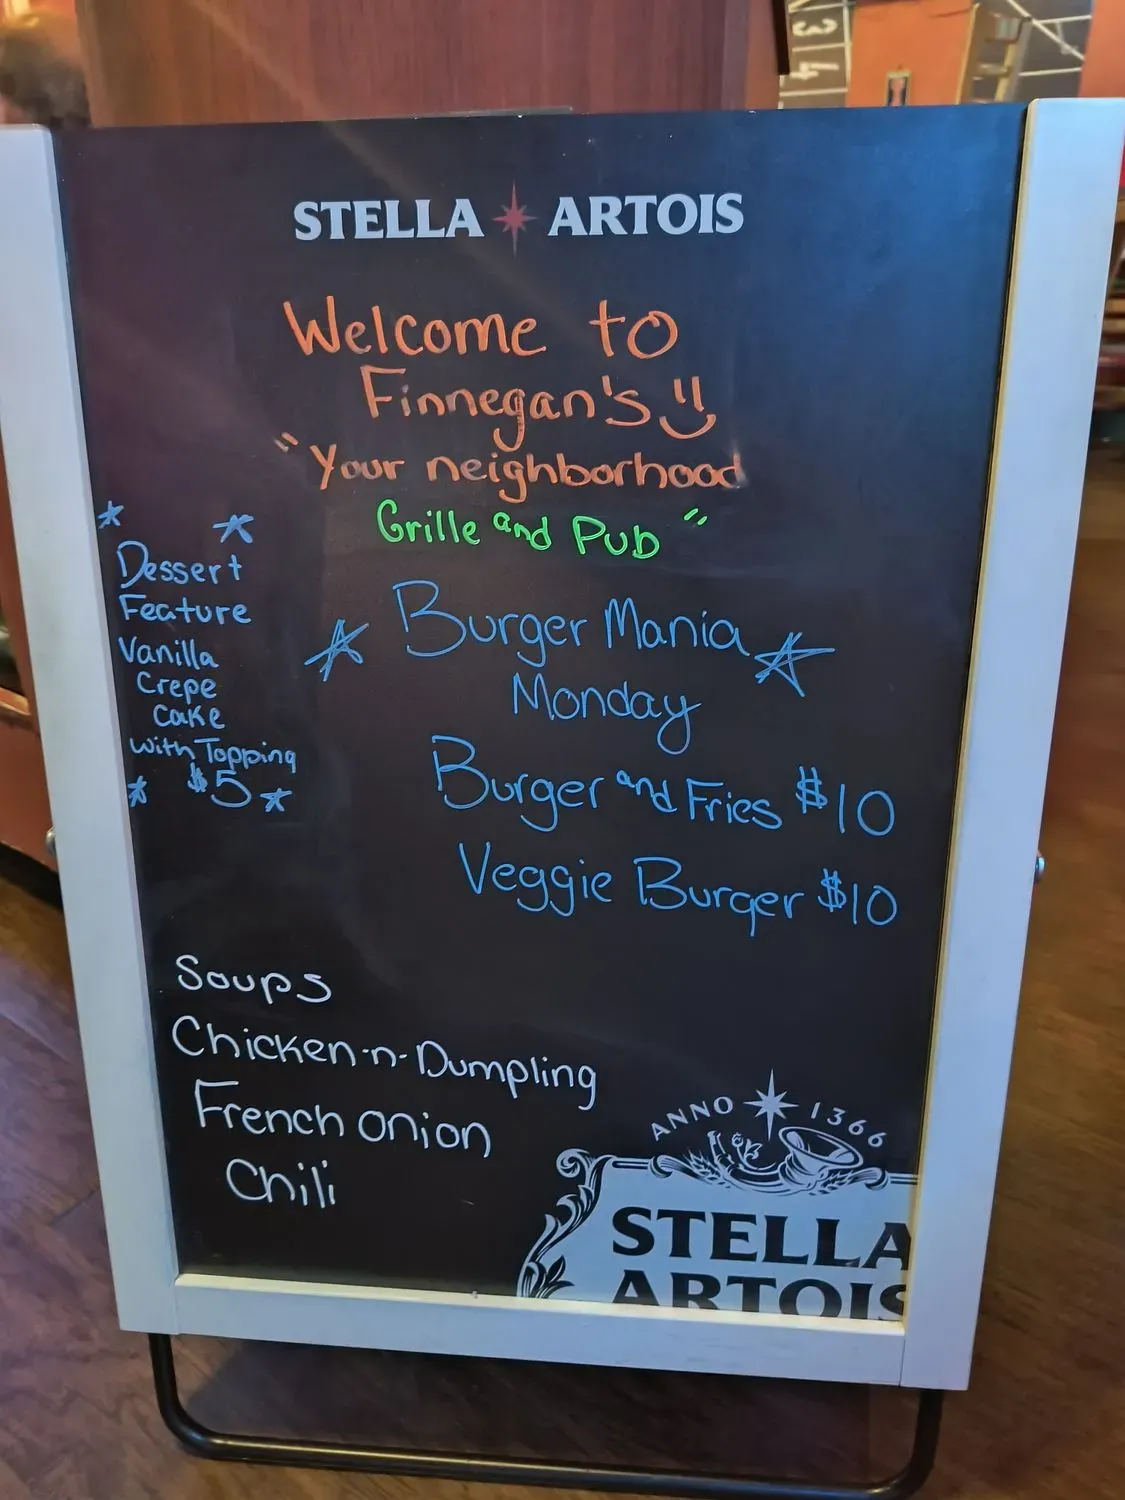 STELLA ARTOIS
Welcome to
Finnegan's
"Your neighborhood
Grille and Pub"
Dessert
Feature
Vanilla
Crepe
Cake
with Topping
$5
Burger Mania
Monday
Burger and Fries $10
Veggie Burger $10
Soups
Chicken-n-Dumpling
French onion
Chili
ANNO 1366
STELLA
ARTOIS
3 4